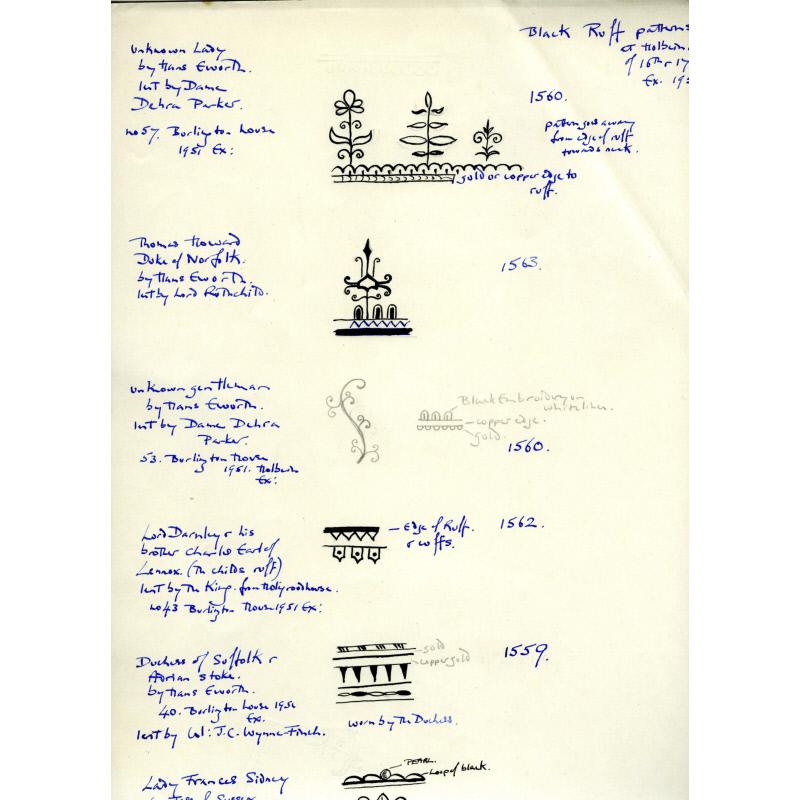 Black Ruff patterns
at Holbein
of 16th & 17
Ex. 19
Unknown Lady
by Hans Eworth.
lent by Dame
Dehra Parker.
no 57. Burlington House
1951 Ex:
1560.
pattern goes away
from edge of ruff
towards neck.
gold or copper edge to
ruff.
Thomas Howard
Duke of Norfolk.
by Hans Eworth.
lent by Lord Rothchild.
1563.
Unknown gentleman
by Hans Eworth.
lent by Dame Dehra
Parker.
53. Burlington House
1951. Holbein
Ex:
Black Embroidery on
white linen.
copper edge.
gold.
1560.
Lord Darnley & his
brother Charles Earl of
Lennox. (The childs ruff)
lent by The King. from Holyroodhouse.
no 43 Burlington House 1951 Ex:
Edge of Ruff.
& cuffs.
1562.
Duchess of Suffolk &
Adrian Stoke.
by Hans Eworth.
40. Burlington House 1951
Ex.
lent by Col: J.C. Wynne-Finch.
gold
copper gold
worn by The Duchess.
1559.
Lady Frances Sidney
PEARL.
Loop of black.